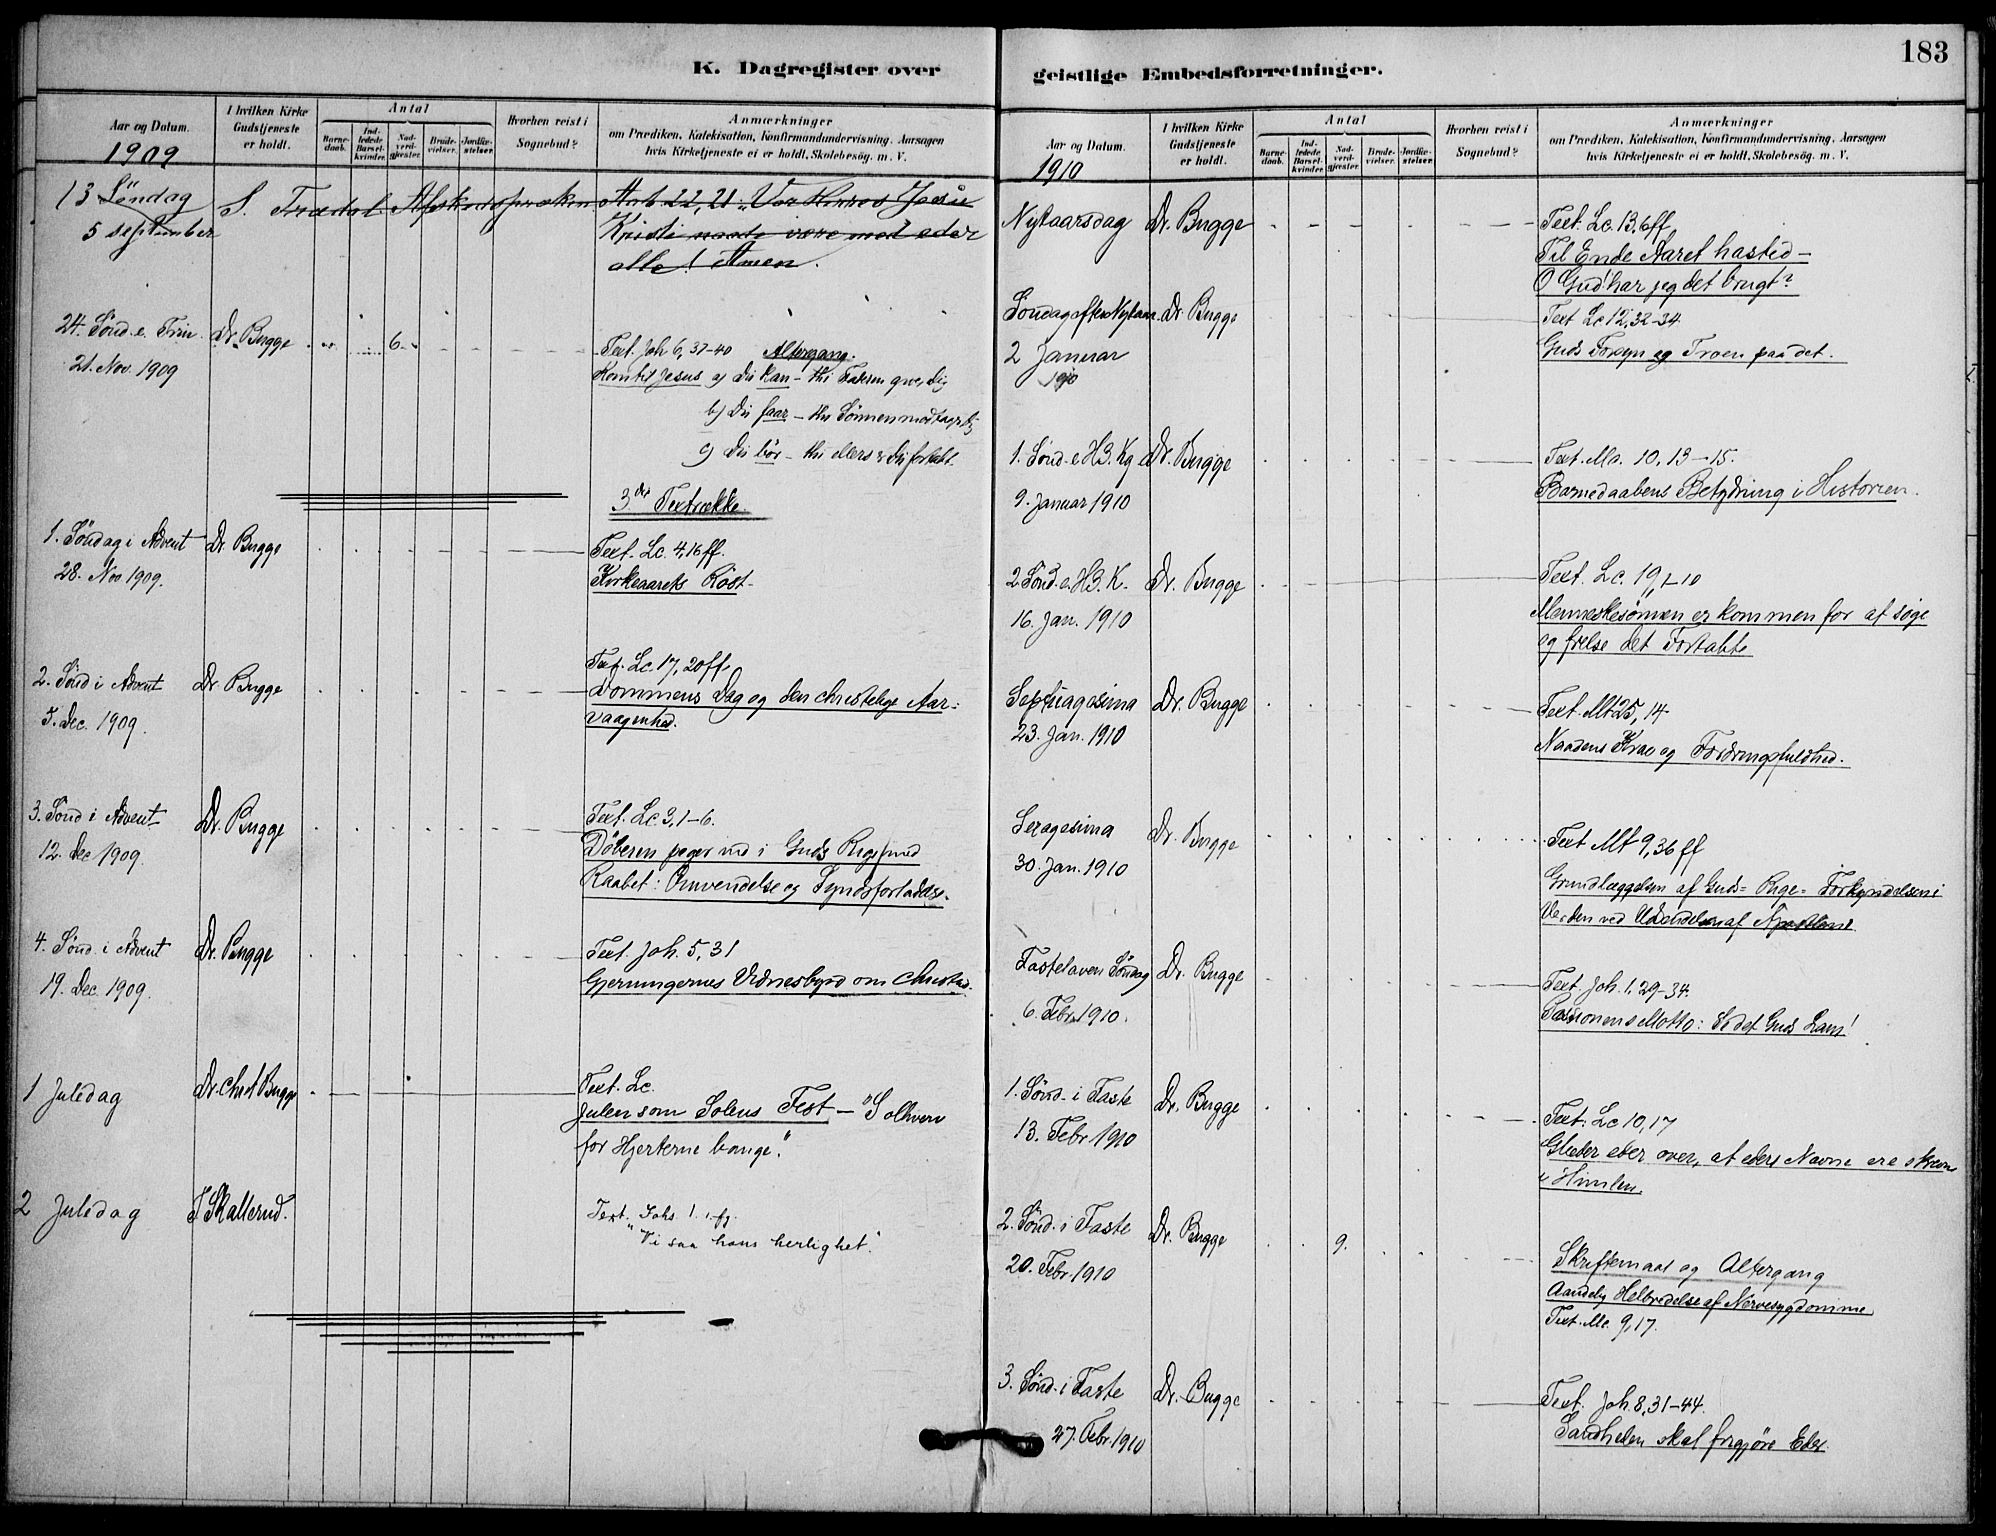 K. Dagregister over
Aar og Datum.
1909
I hvilken Kirke
Gudstjeneste
er holdt.
Antal
Barne-
daab.
Ind-
ledede
Barsel-
kvinder.
Nad-
verd-
gjester.
Brude-
vielser.
Jordfæ-
stelser.
Hvorhen reist i
Sognebud?
Anmærkninger
om Prædiken, Katekisation, Konfirmandundervisning. Aarsagen
hvis Kirketjeneste ei er holdt. Skolebesög. m. V.
13 Söndag S. Trædal. Afskedspræken Aab. 22, 21 "Vor Herres Jesu
5 september Kristi naade være med eder
alle! Amen.
24. Sönd. e. Trin. Dr. Bugge 6. Text. Joh 6, 37-40 Altergang.
21. Nov. 1909 Kom til Jesus a) Du kan - thi Faderen giver dig
b) Du faar - thi Sönnen modtager dig
c) Du bör - thi ellers er du fortabt
3die Textrække.
1. Söndag i Advent Dr. Bugge Text. Lc. 4,16 ff.
28. Nov 1909. Kirkeaarets Röst
2. Sönd i Advent Dr. Bugge Text. Lc. 17, 20 ff.
5. Dec. 1909. Dommens Dag og den christelige Aar-
vaagenhed.
3. Sönd i Advent Dr. Bugge Text. Lc. 3, 1-6.
12. Dec 1909. Döberen peger ind i Guds Rige med
Raabet: Omvendelse og Syndsforladelse.
4. Sönd. i Advent Dr. Bugge Text. Joh. 5, 31
19. Dec. 1909. Gjerningernes Vidnesbyrd om Christus.
1 Juledag Dr. Christ Bugge Text. Lc.
Julen som Solens Fest - "Solhverv
for Hjerterne bange."
2 Juledag T Skallerud. Text. Johs 1. 1 fg.
"Vi saa hans herlighet."
geistlige Embedsforretninger.
183
Aar og Datum.
1910
I hvilken Kirke
Gudstjeneste
er holdt.
Antal
Barne-
daab.
Ind-
ledede
Barsel-
kvinder.
Nad-
verd-
gjester.
Brude-
vielser.
Jordfæ-
stelser.
Hvorhen reist i
Sognebud?
Anmærkninger
om Prædiken, Katekisation, Konfirmandundervisning. Aarsagen
hvis Kirketjeneste ei er holdt. Skolebesög. m. V.
Nytaarsdag Dr. Bugge Text. Lc. 13. 6 ff
Til Ende Aaret hasted -
O Gud! har jeg det brugt?
Söndag efter Nytaar. Dr. Bugge Text Lc 12, 32-34
2 Januar Guds Forsyn og Troen paa det.
1910
1. Sönd. e. H3. Kg Dr. Bugge Text. Mc. 10, 13-15.
9. Januar 1910 Barnedaabens Betydning i Historien.
2 Sönd. e. H3. K. Dr. Bugge Text. Lc. 19, 1-10
16. Jan. 1910 Menneskesönnen er kommen for at söge
og frelse det Fortabte
Septuagesima Dr. Bugge Text. Mt 25, 14.
23. Jan. 1910 Naadens Krav og Fordringsfuldhed.
Sexagesima Dr. Bugge Text Mt 9, 36 ff
30. Jan. 1910 Grundlæggelsen af Guds-Rige-Forkyndelsen i
Verden ved Udsendelsen af Apostlene
Fastelaven Söndag Dr. Bugge Text. Joh. 1, 29-34.
6. Febr 1910. Passionens Motto: Se det Guds Lam!
1. Sönd. i Faste Dr. Bugge Text. Lc 10, 17
13. Febr 1910 Glæder eder over, at eders Navne ere skrevne
i Himlen.
2. Sönd. i Faste Dr. Bugge 9. Skriftemaal og Altergang
20. Febr. 1910 Aandelig Helbredelse af Nervesygdomme
Text. Mc. 9, 17.
3. Sönd. i Faste Dr. Bugge Text. Joh. 8, 31-44.
27. Febr. 1910 Sandheden skal frigjöre Eder.